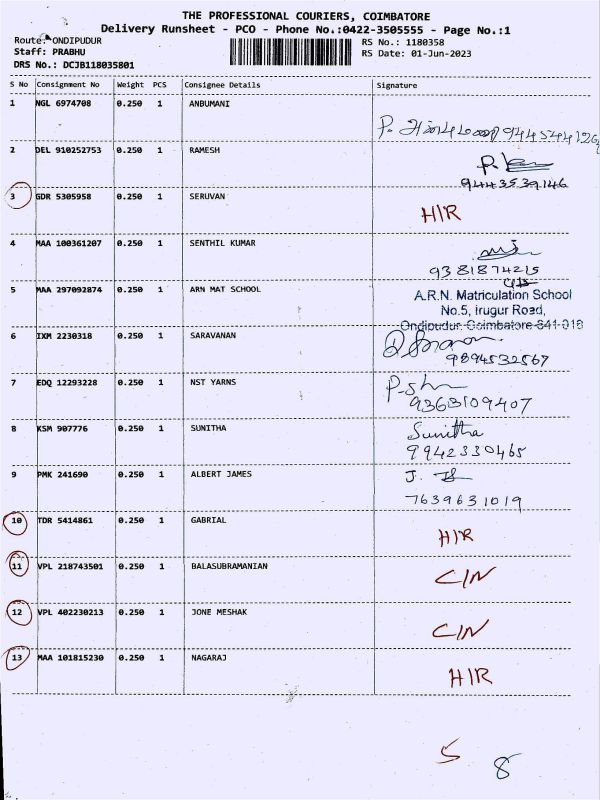 THE PROFESSIONAL COURIERS, COIMBATORE
Delivery Runsheet - PCO - Phone No.:0422-3505555 - Page No.:1
Route: ONDIPUDUR
RS No.: 1180358
Staff: PRABHU
RS Date: 01-Jun-2023
DRS No.: DCJB118035801
S No Consignment No Weight PCS Consignee Details Signature
1 NGL 6974708 0.250 1 ANBUMANI
P.
2 DEL 910252753 0.250 1 RAMESH
9443539146
3 GDR 5305958 0.250 1 SERUVAN H/R
4 MAA 100361207 0.250 1 SENTHIL KUMAR
9381874215
5 MAA 297092874 0.250 1 ARN MAT SCHOOL A.R.N. Matriculation School
No.5, Irugur Road,
Ondipudur. Coimbatore-641 016
6 IXM 2230318 0.250 1 SARAVANAN
9894532567
7 EDQ 12293228 0.250 1 NST YARNS
9363109407
8 KSM 907776 0.250 1 SUNITHA Sunitha
9942330465
9 PMK 241690 0.250 1 ALBERT JAMES J.
7639631019
10 TDR 5414861 0.250 1 GABRIAL H/R
11 VPL 218743501 0.250 1 BALASUBRAMANIAN C/N
12 VPL 402230213 0.250 1 JONE MESHAK C/N
13 MAA 101815230 0.250 1 NAGARAJ H/R
5 8